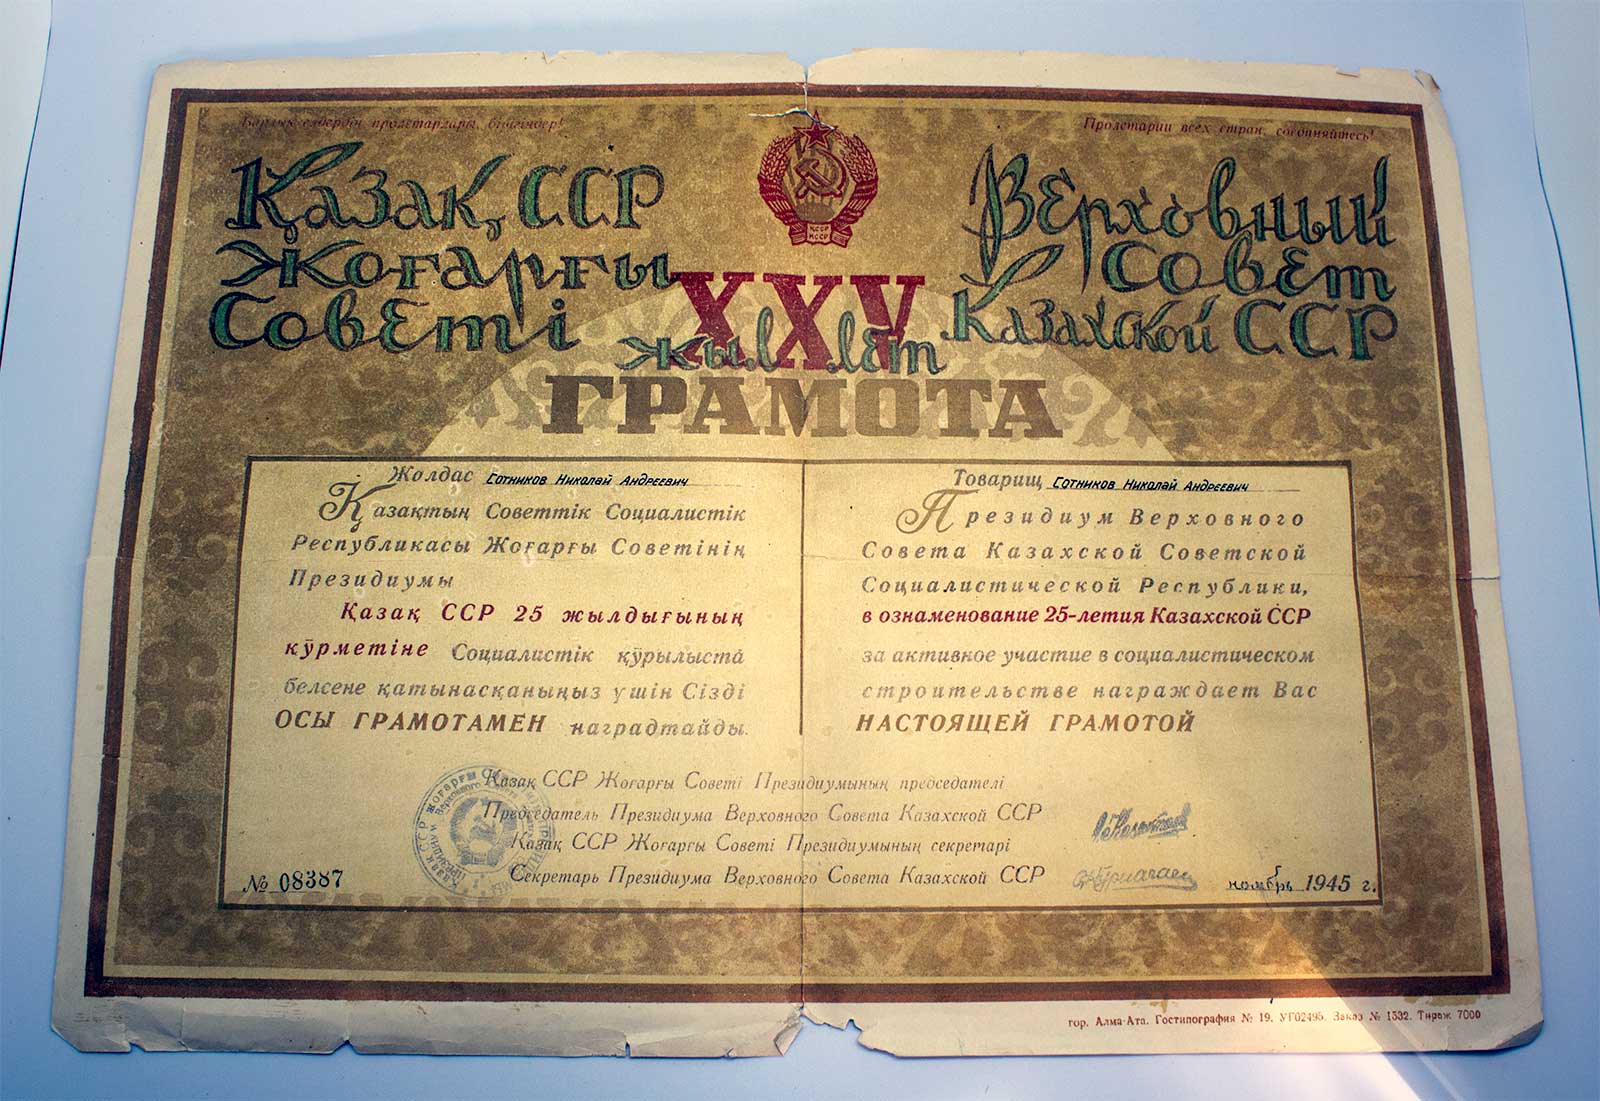 Барлық елдердің пролетарлары, бірігіңдер!
Пролетарии всех стран, соединяйтесь!
Қазақ ССР
Жоғарғы
Советі
Верховный
Совет
Казахской ССР
XXV
жыл лет
ГРАМОТА
Жолдас Сотников Николай Андреевич
Қазақтың Советтік Социалистік
Республикасы Жоғарғы Советінің
Президиумы
Қазақ ССР 25 жылдығының
құрметіне Социалистік құрылыста
белсене қатынасқаныңыз үшін Сізді
ОСЫ ГРАМОТАМЕН наградтайды.
Товарищ Сотников Николай Андреевич
Президиум Верховного
Совета Казахской Советской
Социалистической Республики,
в ознаменование 25-летия Казахской ССР
за активное участие в социалистическом
строительстве награждает Вас
НАСТОЯЩЕЙ ГРАМОТОЙ
Қазақ ССР Жоғарғы Советі Президиумының председателі
Председатель Президиума Верховного Совета Казахской ССР
Қазақ ССР Жоғарғы Советі Президиумының секретарі
Секретарь Президиума Верховного Совета Казахской ССР
№ 08387
ноябрь 1945 г.
гор. Алма-Ата. Гостипография № 19. УГ02495. Заказ № 1532. Тираж 7000